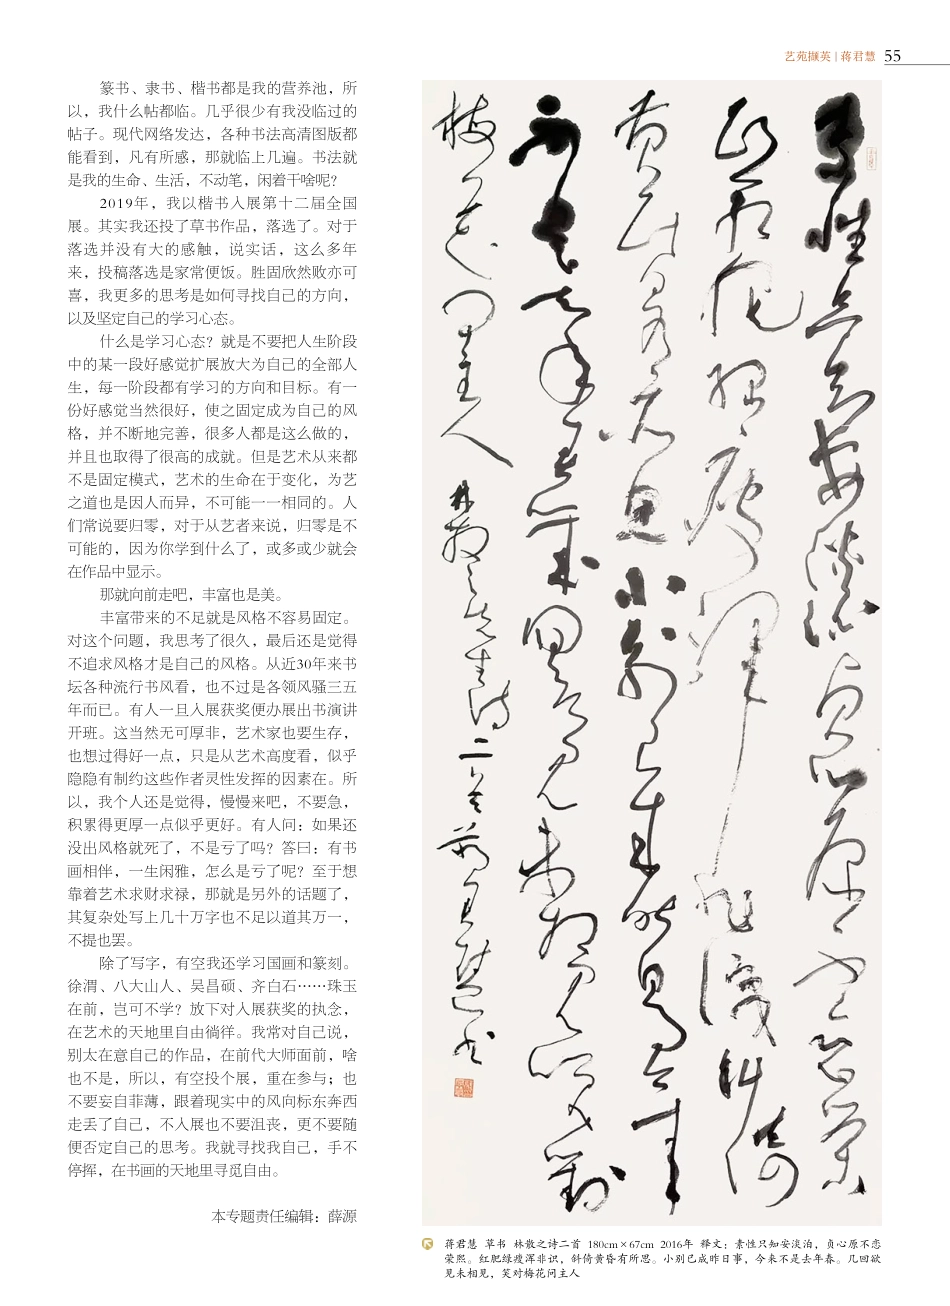 艺苑撷英 | 蒋君慧 55
篆书、隶书、楷书都是我的营养池，所
以，我什么帖都临。几乎很少有我没临过的
帖子。现代网络发达，各种书法高清图版都
能看到，凡有所感，那就临上几遍。书法就
是我的生命、生活，不动笔，闲着干啥呢？
2019年，我以楷书入展第十二届全国
展。其实我还投了草书作品，落选了。对于
落选并没有大的感触，说实话，这么多年
来，投稿落选是家常便饭。胜固欣然败亦可
喜，我更多的思考是如何寻找自己的方向，
以及坚定自己的学习心态。
什么是学习心态？就是不要把人生阶段
中的某一段好感觉扩展放大为自己的全部人
生，每一阶段都有学习的方向和目标。有一
份好感觉当然很好，使之固定成为自己的风
格，并不断地完善，很多人都是这么做的，
并且也取得了很高的成就。但是艺术从来都
不是固定模式，艺术的生命在于变化，为艺
之道也是因人而异，不可能一一相同的。人
们常说要归零，对于从艺者来说，归零是不
可能的，因为你学到什么了，或多或少就会
在作品中显示。
那就向前走吧，丰富也是美。
丰富带来的不足就是风格不容易固定。
对这个问题，我思考了很久，最后还是觉得
不追求风格才是自己的风格。从近30年来书
坛各种流行书风看，也不过是各领风骚三五
年而已。有人一旦入展获奖便办展出书演讲
开班。这当然无可厚非，艺术家也要生存，
也想过得好一点，只是从艺术高度看，似乎
隐隐有制约这些作者灵性发挥的因素在。所
以，我个人还是觉得，慢慢来吧，不要急，
积累得更厚一点似乎更好。有人问：如果还
没出风格就死了，不是亏了吗？答曰：有书
画相伴，一生闲雅，怎么是亏了呢？至于想
靠着艺术求财求禄，那就是另外的话题了，
其复杂处写上几十万字也不足以道其万一，
不提也罢。
除了写字，有空我还学习国画和篆刻。
徐渭、八大山人、吴昌硕、齐白石……珠玉
在前，岂可不学？放下对入展获奖的执念，
在艺术的天地里自由徜徉。我常对自己说，
别太在意自己的作品，在前代大师面前，啥
也不是，所以，有空投个展，重在参与；也
不要妄自菲薄，跟着现实中的风向标东奔西
走丢了自己，不入展也不要沮丧，更不要随
便否定自己的思考。我就寻找我自己，手不
停挥，在书画的天地里寻觅自由。
本专题责任编辑：薛源
素性只知安淡泊贞心原不恋荣
熙红肥绿瘦浑非识斜倚
黄昏有所思小别已成昨日事
今来不是去年春几回欲见未相见笑对
梅花问主人 林散之先生诗二首 蒋君慧书
蒋君慧 草书 林散之诗二首 180cm×67cm 2016年 释文：素性只知安淡泊，贞心原不恋
荣熙。红肥绿瘦浑非识，斜倚黄昏有所思。小别已成昨日事，今来不是去年春。几回欲
见未相见，笑对梅花问主人